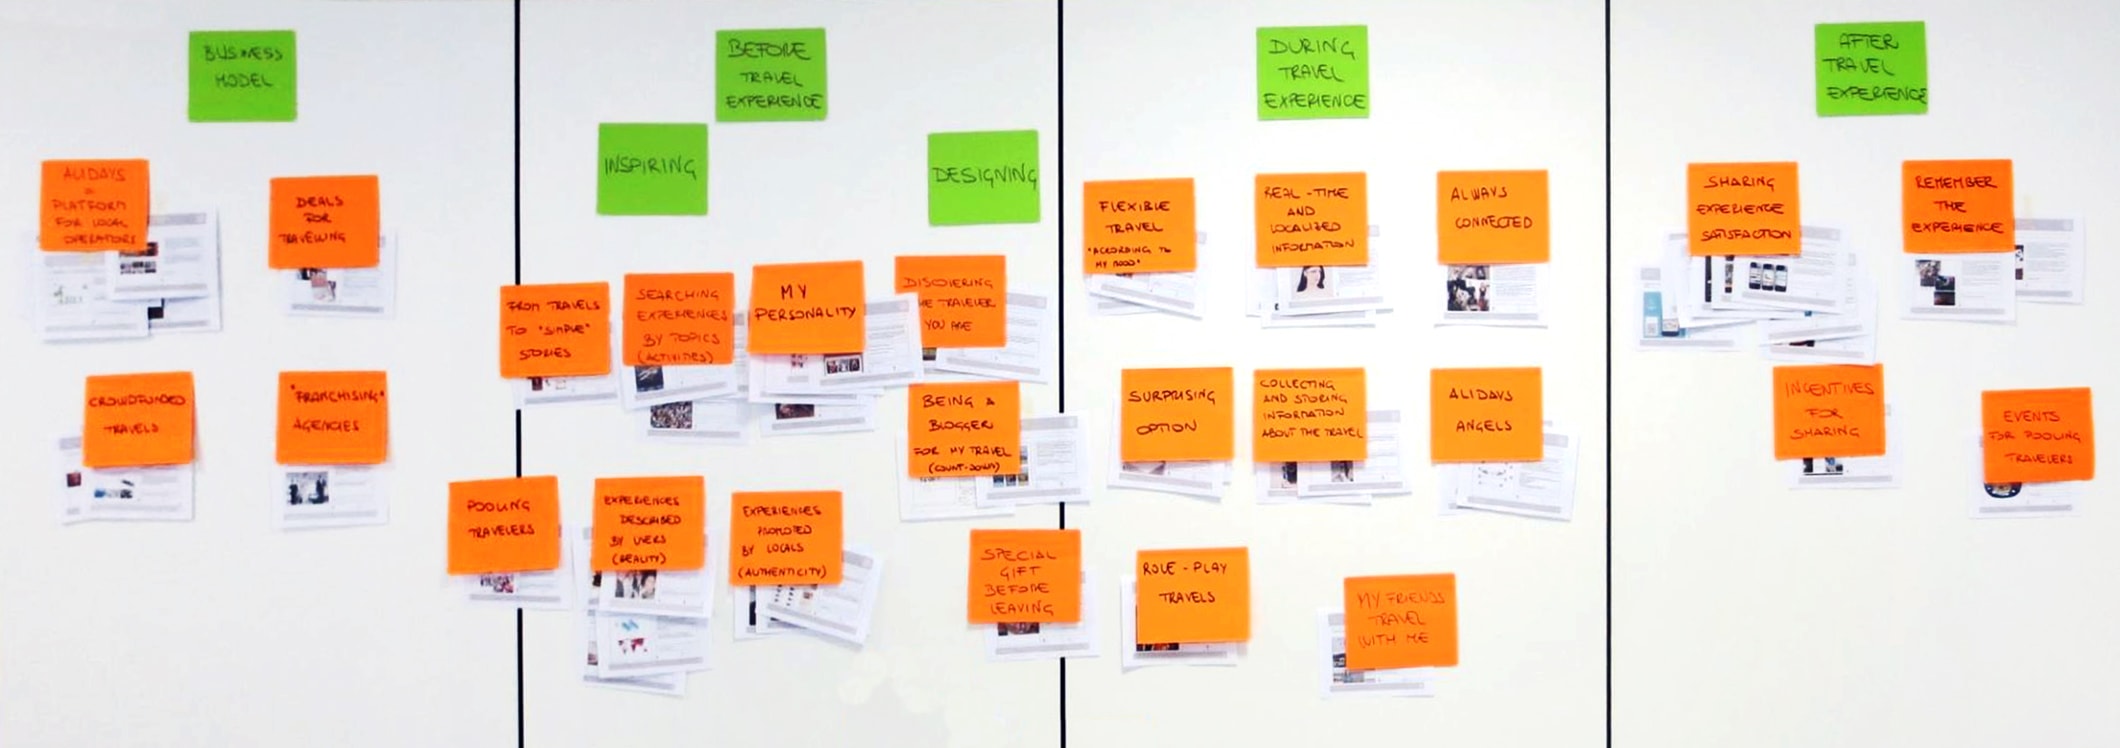 BUSINESS
MODEL
ALIDAYS
=
PLATFORM
FOR LOCAL
OPERATORS
DEALS
FOR
TRAVELLING
CROWDFUNDED
TRAVELS
"FRANCHISING"
AGENCIES
BEFORE
TRAVEL
EXPERIENCE
INSPIRING
DESIGNING
FROM TRAVELS
TO "SIMPLE"
STORIES
SEARCHING
EXPERIENCES
BY TOPICS
(ACTIVITIES)
MY
PERSONALITY
DISCOVERING
THE TRAVELER
YOU ARE
BEING A
BLOGGER
FOR MY TRAVEL
(COUNT-DOWN)
POOLING
TRAVELERS
EXPERIENCES
DESCRIBED
BY USERS
(REALITY)
EXPERIENCES
PROMOTED
BY LOCALS
(AUTHENTICITY)
SPECIAL
GIFT
BEFORE
LEAVING
DURING
TRAVEL
EXPERIENCE
FLEXIBLE
TRAVEL
"ACCORDING TO
MY MOOD"
REAL-TIME
AND
LOCALIZED
INFORMATION
ALWAYS
CONNECTED
SURPRISING
OPTION
COLLECTING
AND STORING
INFORMATION
ABOUT THE TRAVEL
ALIDAYS
ANGELS
ROLE-PLAY
TRAVELS
MY FRIENDS
TRAVEL
WITH ME
AFTER
TRAVEL
EXPERIENCE
SHARING
EXPERIENCE
SATISFACTION
REMEMBER
THE
EXPERIENCE
INCENTIVES
FOR
SHARING
EVENTS
FOR POOLING
TRAVELERS